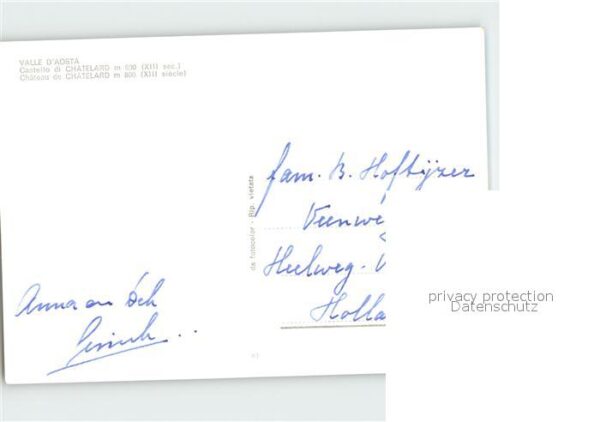 VALLE D'AOSTA
Castello di CHATELARD m 800 (XIII sec.)
Château de CHATELARD m 800 (XIII siècle)
da fotocolor - Rip. vietata
fam. B. Hoftijzer
Veenwe
Heelweg - V
Holla
Anna en
privacy protection
Datenschutz